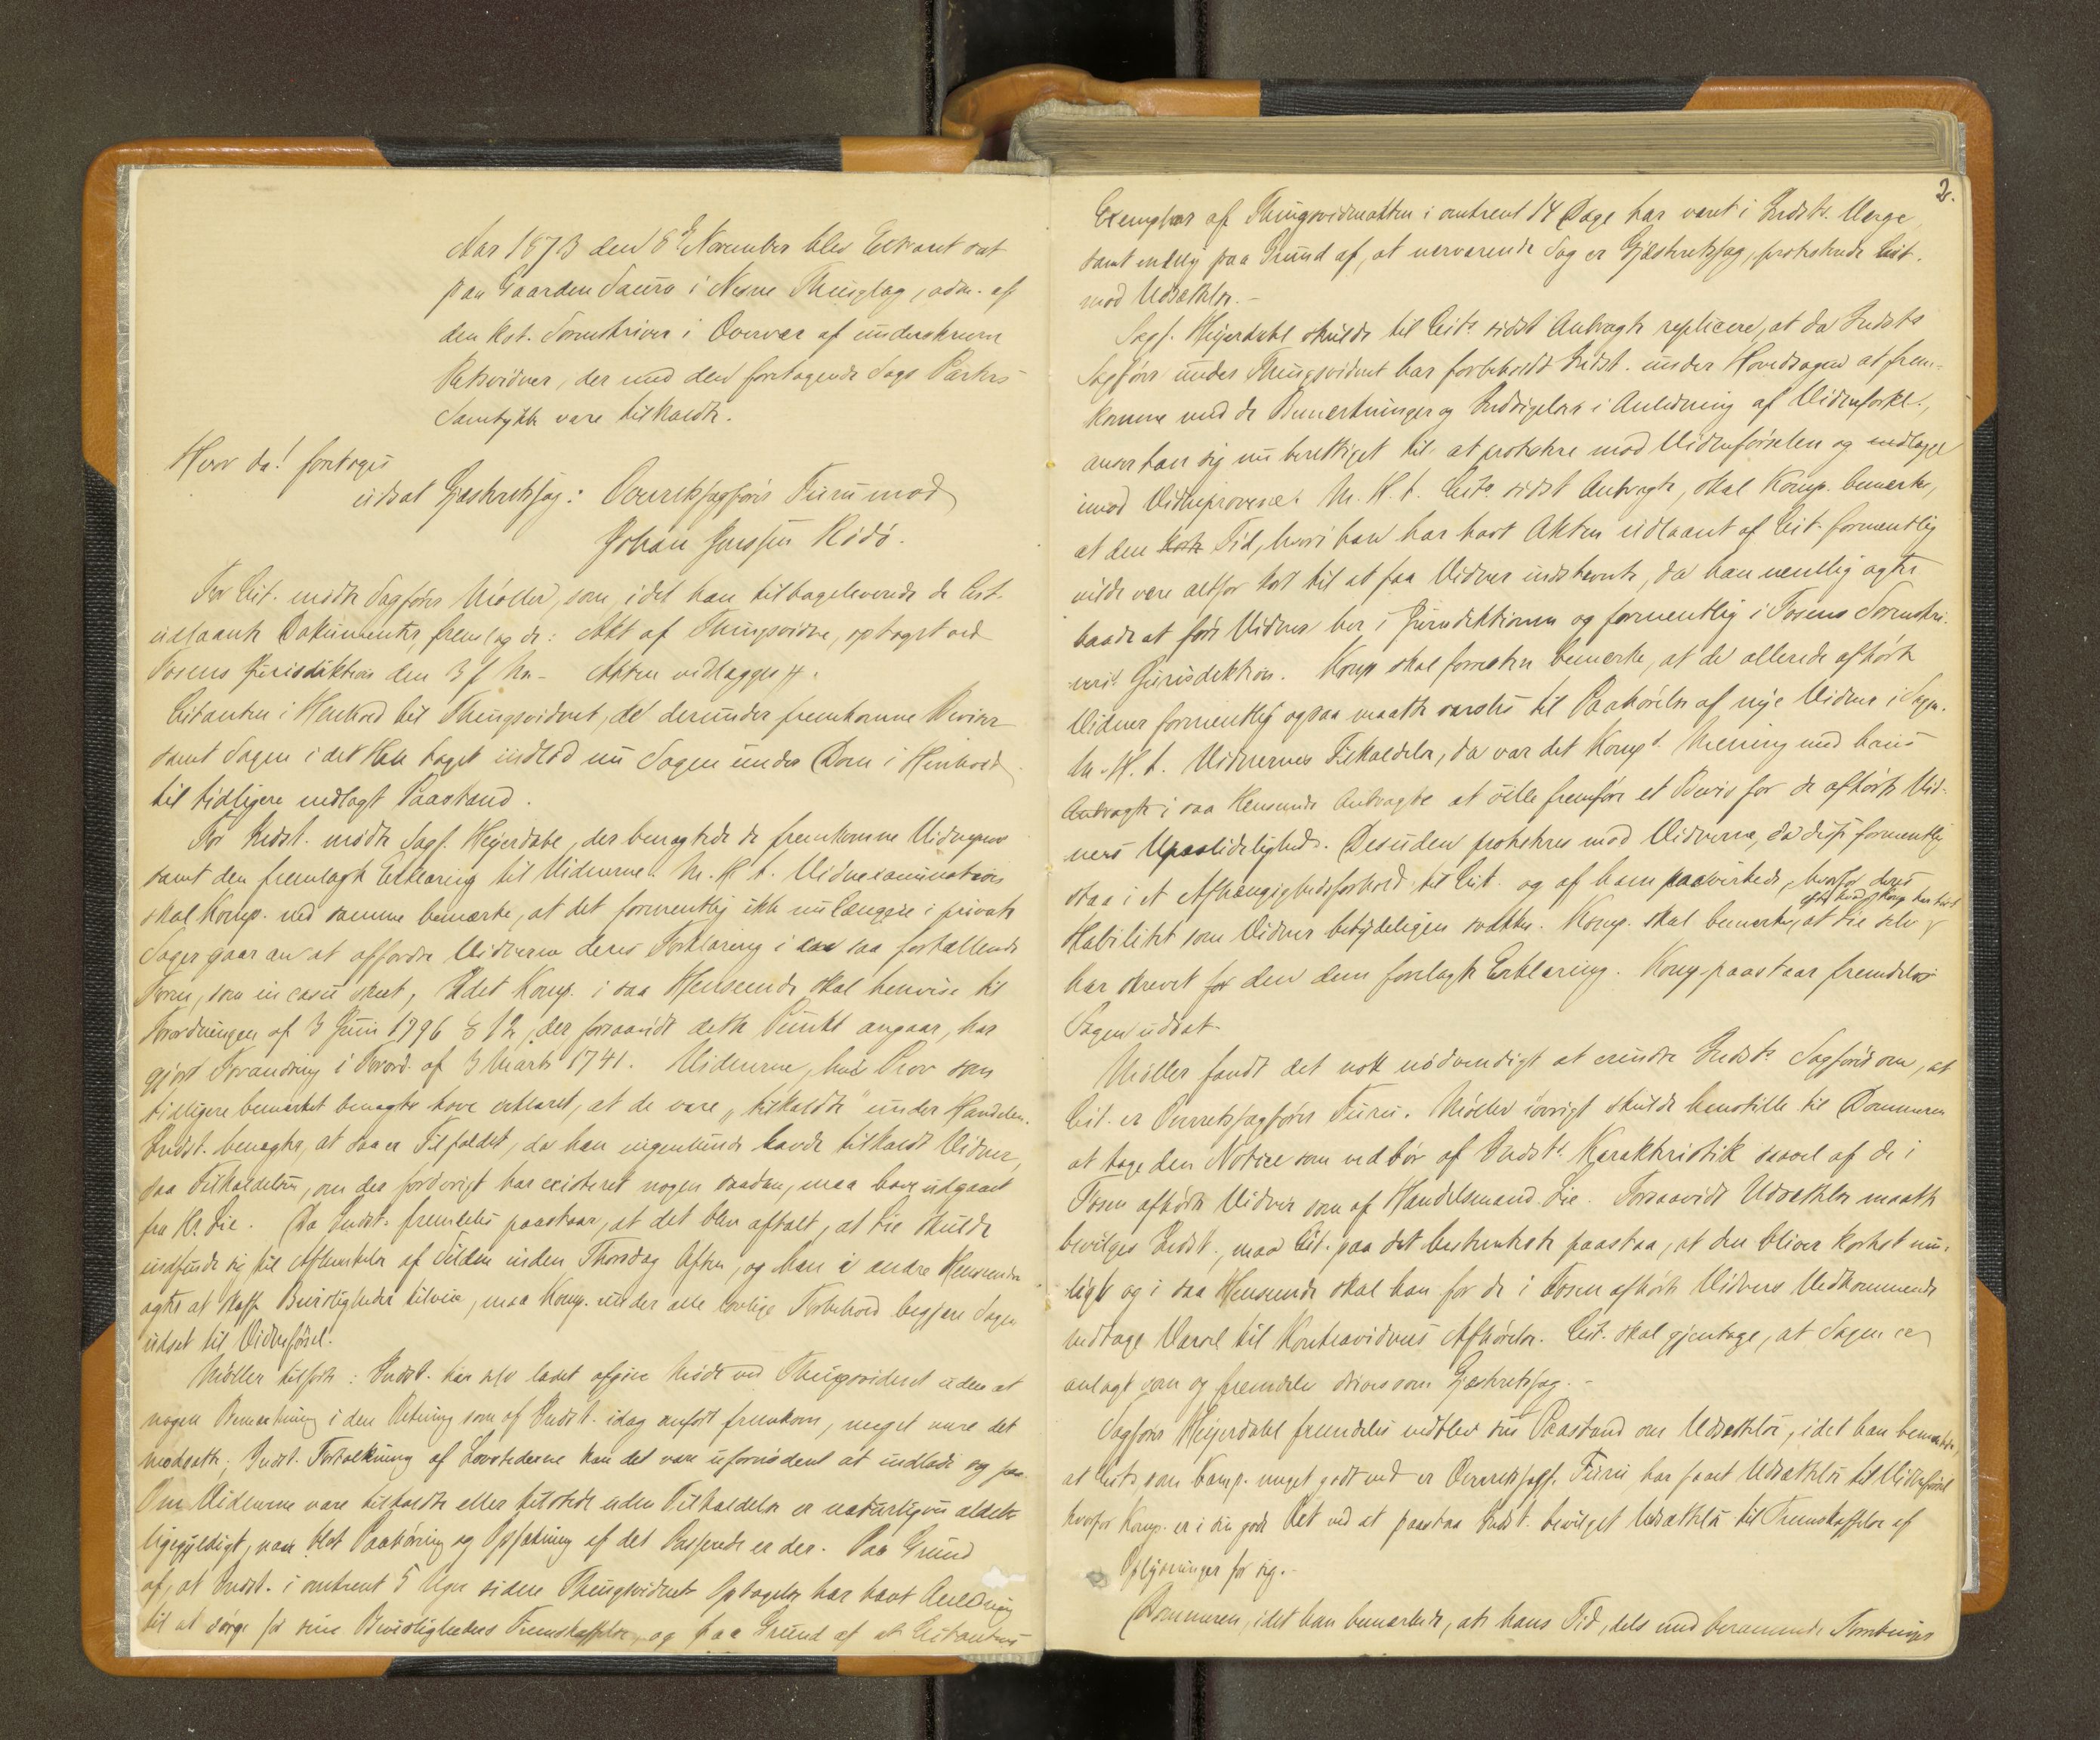 Aar 1873 den 8de November blev Extraret sat
paa Gaarden Saura i Nesne Thinglag, adm. af
den kst. Sorenskriver i Overvær af underskrevne
Retsvidner, der med den foretagende Sags Parters
Samtykke vare tilkaldte.
Hvor da! foretoges
udsat Gjæsteretssag: Overretssagfører Furu mod
Johan Jenssen Rødø.
For Cit. mødte Sagfører Møller, som, idet han tilbageleverede de Cit.
udlaante Dokumenter, fremlagde: Akt af Thingsvidne, optaget ved
Fosens Jurisdiktion den 3 f. M. - Akten vedlægges #.
Citanten i Henhold til Thingsvidnet, de derunder fremkomne Beviser
samt Sagen i det Hele taget indlod nu Sagen under Dom i Henhold
til tidligere nedlagt Paastand.
For Indst. mødte Sagf. Heyerdahl, der benægtede de fremkomne Vidneprov
samt den fremlagte Erklæring til Vidnerne. M. H. t. Vidneexaminationen
skal Komp. ved samme bemærke, at det formentlig ikke nu længere i private
Sager gaar an at affordre Vidnerne deres Forklaring i saa fortællende
Form, som in casu skeet, idet Komp. i saa Henseende skal henvise til
Forordningen af 3 Juni 1796 § 12, der forsaavidt dette Punkt angaar, har
gjort Forandring i Forord. af 3 Marts 1741. Vidnerne, hvis Prov som
tidligere bemærket benægtes have erklæret, at de vare "tilkaldte" under Handelen.
Indst. benægter, at saa er Tilfældet, da han ingenlunde havde tilkaldt Vidner,
saa Tilkaldelsen, om der forøvrigt har existeret nogen saadan, maa have udgaaet
fra Hr. Lie. Da Indst. fremdeles paastaar, at det blev aftalt, at Lie skulde
indfinde sig til Afhentelse af Silden inden Thorsdag Aften, og han i andre Henseender
agter at skaffe Bevisligheder tilveie, maa Komp. under alle lovlige Forbehold begjære Sagen
udsat til Vidneførsel.
Møller tilførte: Indst. har selv ladet afgive Møde ved Thingsvidnet uden at
nogen Bemærkning i den Retning som af Indst. idag anført fremkom, meget mere det
modsatte; Indst. Fortolkning af Lovstederne kan det være ufornødent at indlade sig paa.
Om Vidnerne vare tilkaldte eller tilstede uden Tilkaldelse er naturligvis aldeles
ligegyldigt, naar blot Paahøring og Opfatning af det Passerede er der. Paa Grund
af, at Indst. i omtrent 5 Uger siden Thingsvidnets Optagelse har havt Anledning
til at sørge for sine Bevisligheders Fremskaffelse, og paa Grund af at Citantens
2.
Exemplar af Thingsvidneakten i omtrent 14 Dage har været i Indsts. Værge,
samt endelig paa Grund af, at nærværende Sag er Gjæsteretssag, protesterede Cit.
mod Udsættelse. -
Sagf. Heyerdahl skulde til Cits. sidste Andragte replicere, at da Indsts.
Sagfører under Thingsvidnet har forbeholdt Indst. under Hovedsagen at frem-
komme med de Bemærkninger og Indsigelser i Anledning af Vidneforkl.,
anser han sig nu berettiget til at protestere mod Vidneførselen og nedlægge
imod Vidneprovene. M. H. t. Cits. sidste Andragte, skal Komp. bemærke,
at den korte Tid, hvori han har havt Akten udlaant af Cit. formentlig
vilde være altfor kort til at faa Vidner indstævnte, da han nemlig agter
baade at føre Vidner her i Jurisdiktionen og formentlig i Fosens Sorenskri-
veris Jurisdiktion. Komp. skal forresten bemærke, at de allerede afhørte
Vidner formentlig ogsaa maatte varsles til Paahørelse af nye Vidner i Sagen.
M. H. t. Vidnernes Tilkaldelse, da var det Komp.s Mening med hans
Andragte i saa Henseende Andragte at ville fremføre et Bevis for de afhørte Vid-
ners Upaalidelighed. Desuden protesteres mod Vidnerne, da disse formentlig
staa i et Afhængighedsforhold til Cit. og af ham paavirkede, hvorfor deres
Habilitet som Vidner betydeligen svækkes. Komp. skal bemærke, at Lie selv efter hvad Komp. har hørt
har skrevet for den dem forelagte Erklæring. Komp. paastaar fremdeles
Sagen udsat.
Møller fandt det nok nødvendigt at erindre Indsts. Sagfører om, at
Cit. er Overretssagfører Furu. Møller iøvrigt skulde henstille til Dommeren
at tage den Notice som ved bør af Indsts. Karakteristik saavel af de i
Fosen afhørte Vidner som af Handelsmand Lie. Forsaavidt Udsættelse maatte
bevilges Indst., maa Cit. paa det bestemteste paastaa, at den bliver kortest mu-
ligt og i saa Henseende skal han for de i Fosen afhørte Vidners Vedkommende
vedtage Varsel til Kontravidners Afhørelse. Cit. skal gjentage, at Sagen er
anlagt som og fremdeles drives som Gjæsteretssag. -
Sagfører Heyerdahl fremdeles vedblev sin Paastand om Udsættelse, idet han bemærkede,
at Cits., som Komp. meget godt ved er Overretssagf. Furu, har faaet Udsættelse til Vidneførsel
hvorfor Komp. er i sin gode Ret ved at paastaa Indst. bevilget Udsættelse til Fremskaffelse af
Oplysninger for sig. -
Dommeren, idet han bemærkede, at hans Tid, dels ved berammede Forretninger